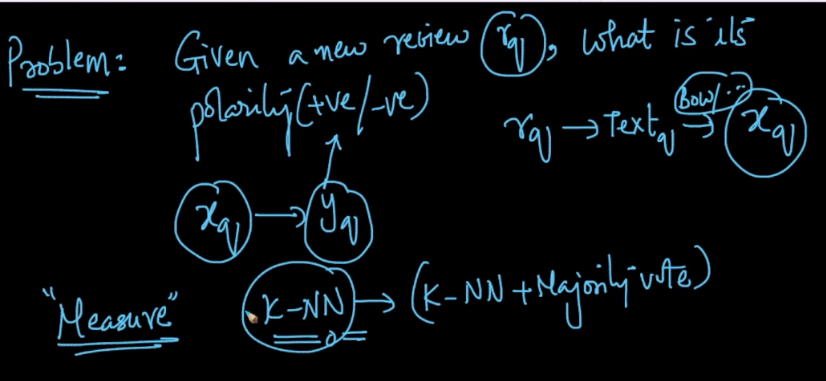 Problem: Given a new review r_q, what is its
polarity (+ve/-ve)
r_q → Text_q → (BOW/...) x_q
x_q → y_q
"Measure" K-NN → (K-NN + Majority vote)